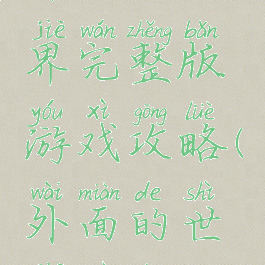 jiè wán zhěng bǎn
界完整版
yóu xì gōng lüè
游戏攻略(
wài miàn de shì
外面的世